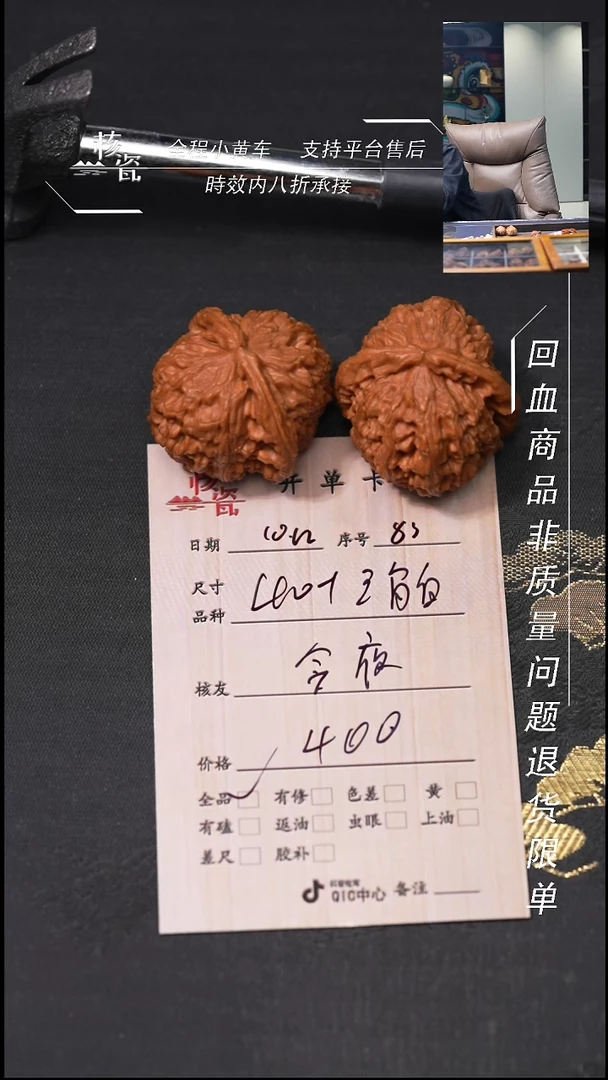 核瓷
全程小黄车 支持平台售后
時效内八折承接
回血商品非质量问题退货限单
核瓷 开单卡
日期 序号 83
尺寸
品种
核友 今夜
价格 400
全品 有修 色差 黄
有磕 返油 虫眼 上油
差尺 胶补
抖音电商
QIC中心 备注